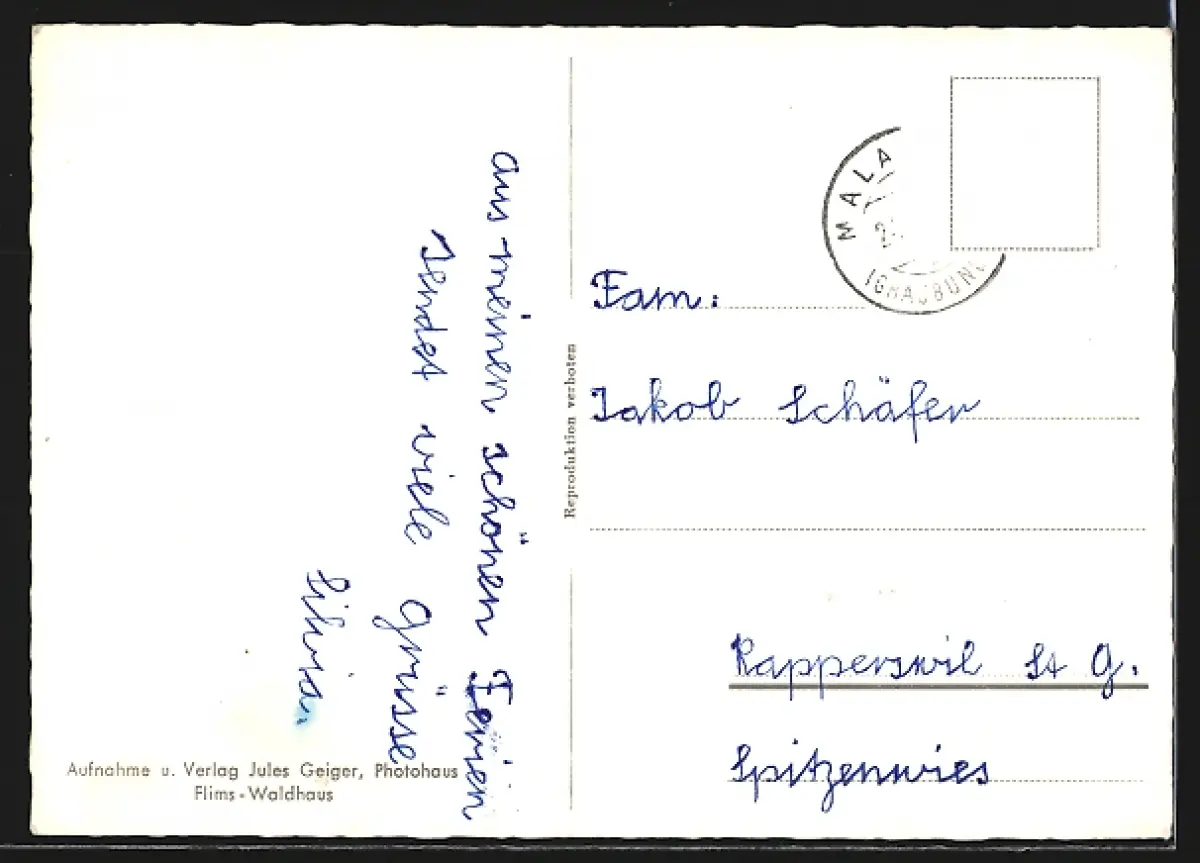 aus meinen schönen Ferien
sendet viele Grüsse
Silvia.
Aufnahme u. Verlag Jules Geiger, Photohaus
Flims-Waldhaus
Reproduktion verboten
MALA
Fam:
Jakob Schäfer
Rapperswil St G.
Spitzenwies